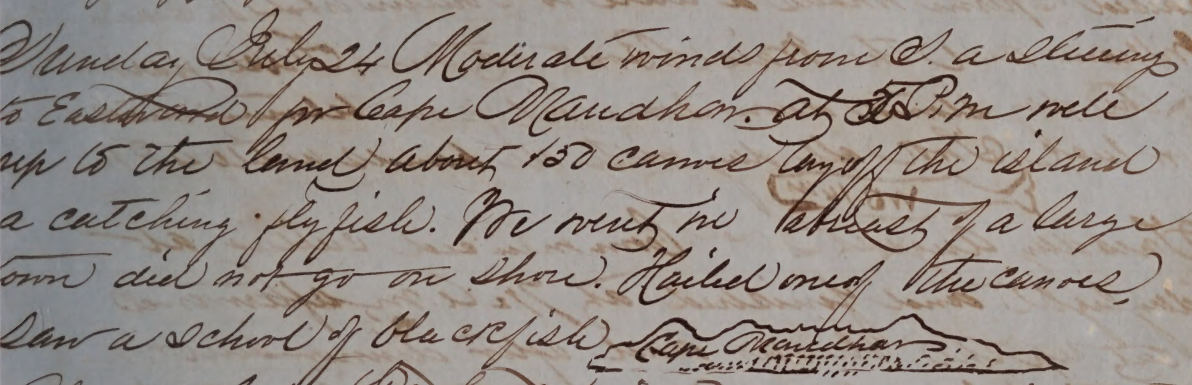 Sunday July 24 Moderate winds from S. a steering
to Eastward for Cape Mandhar. at 3 P.m were
up to the land about 150 canoes lay off the island
a catching flyfish. We went in abreast of a large
town did not go on shore. Hailed one of the canoes,
saw a school of blackfish Cape Mandhar